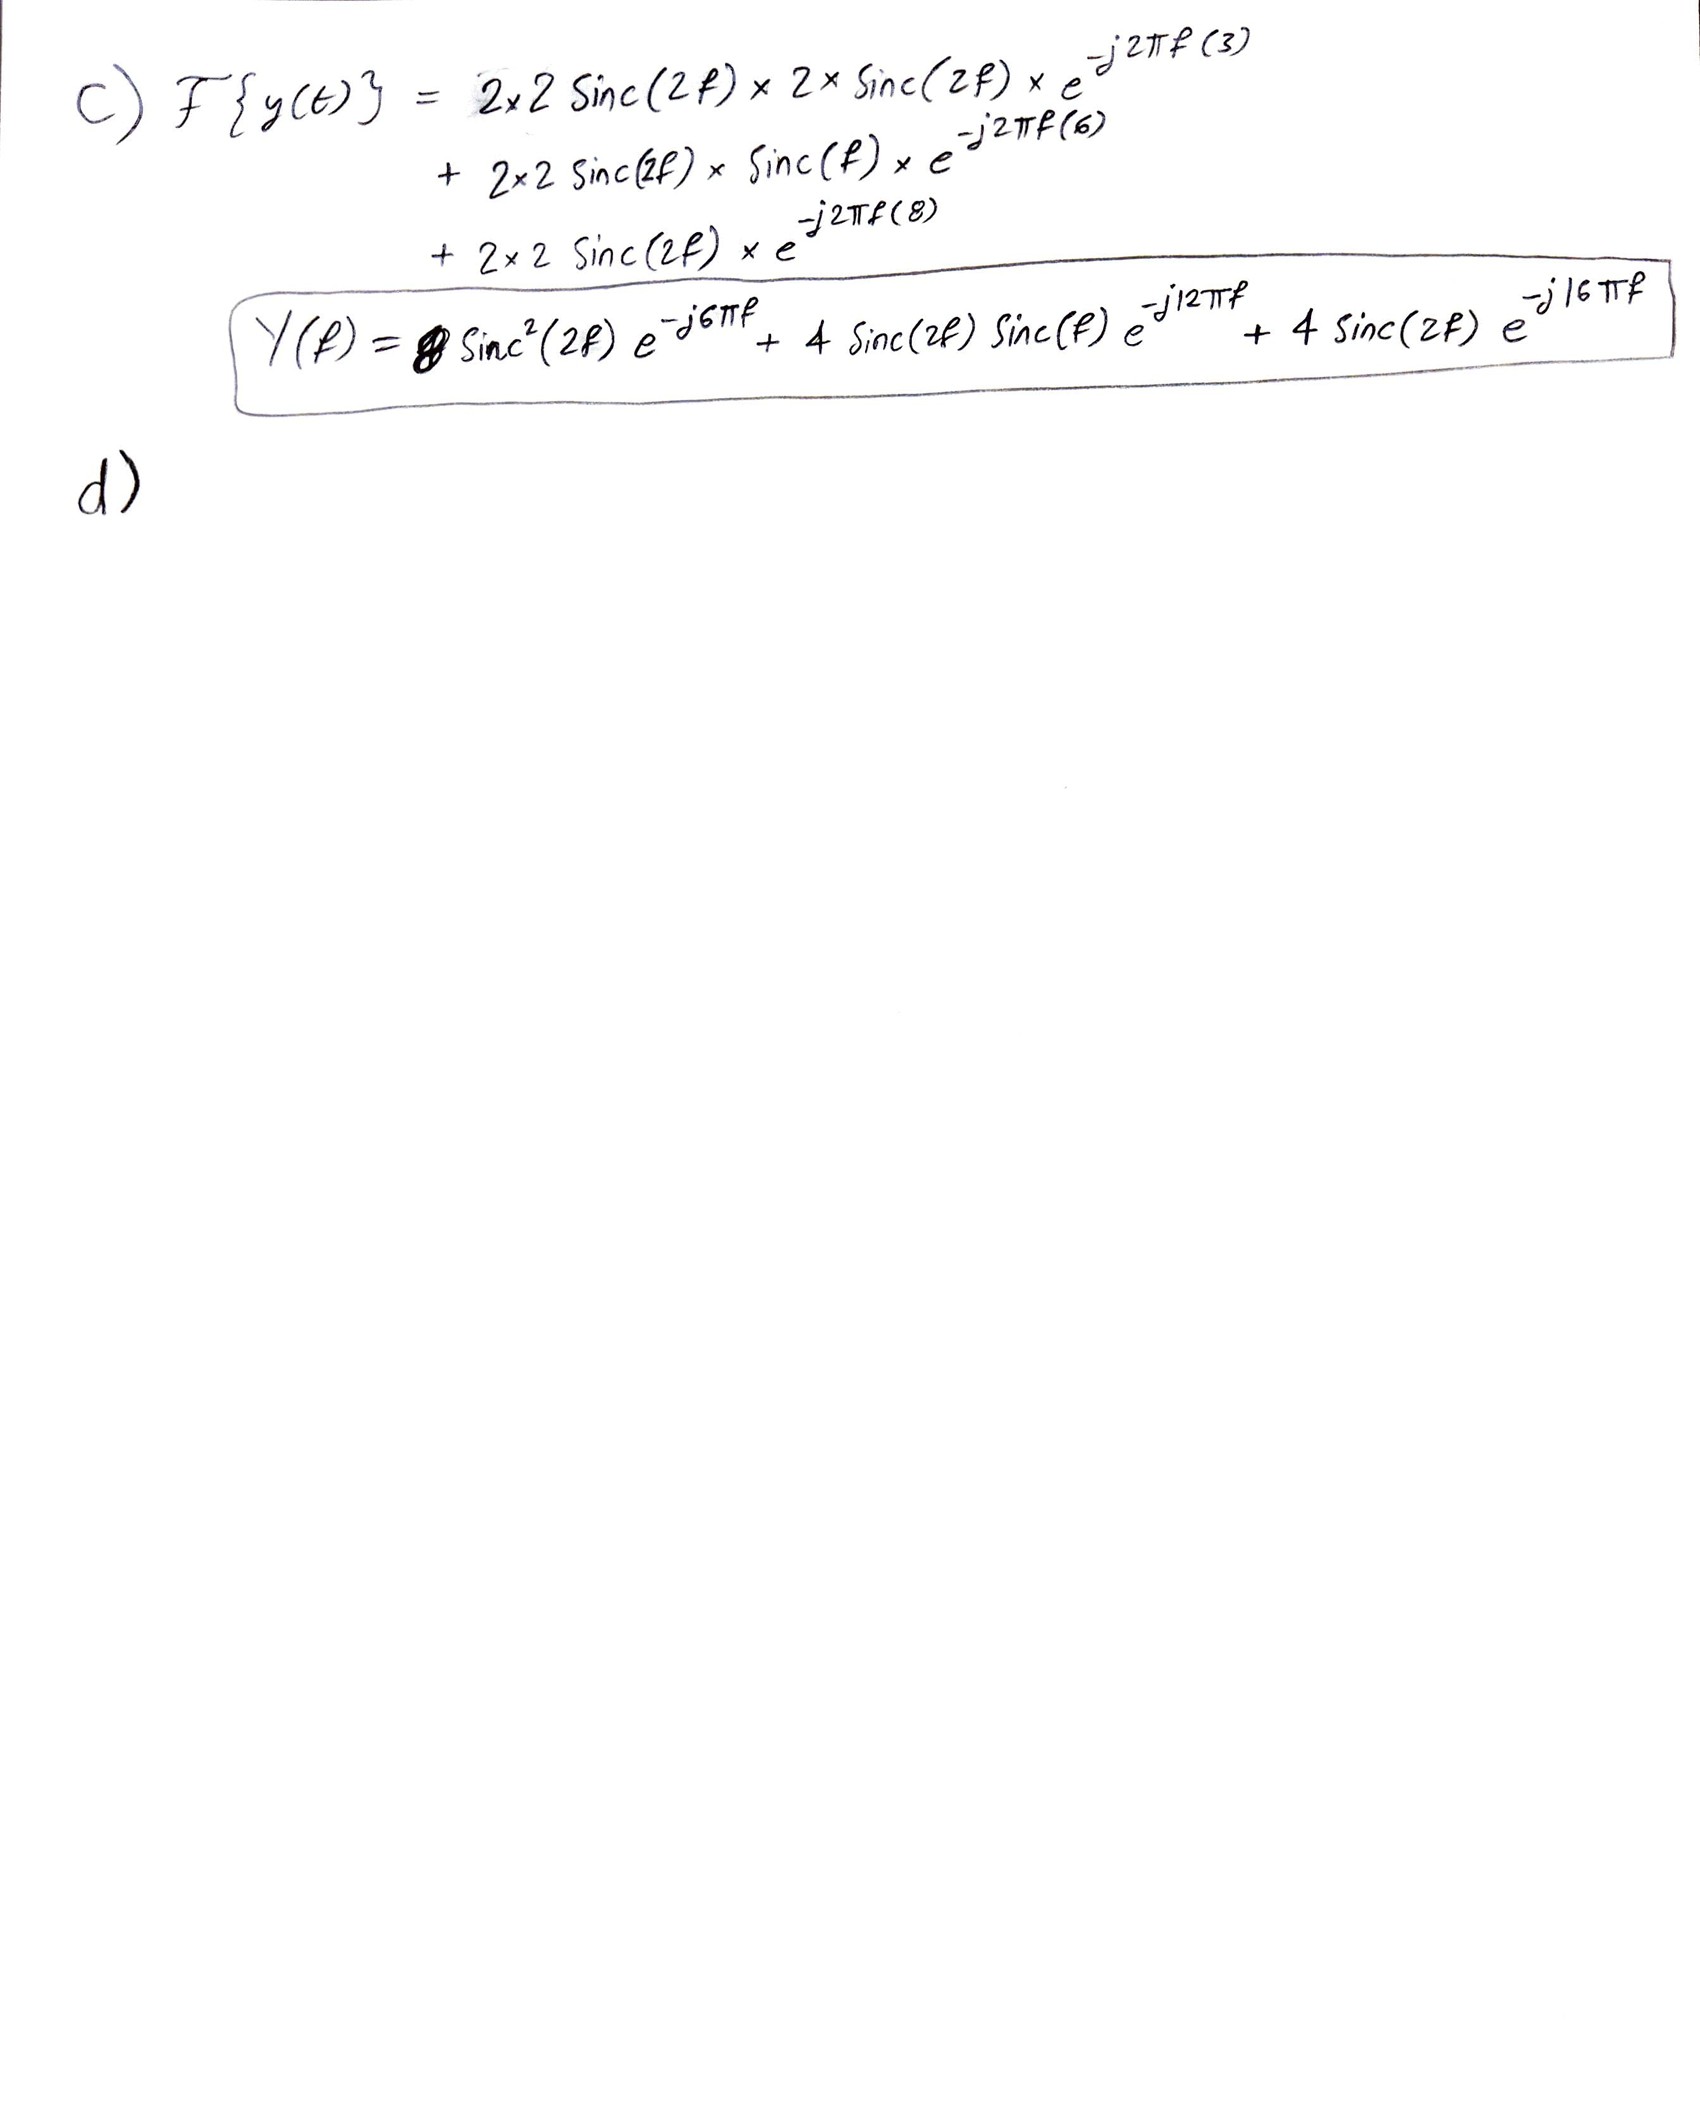 c) F{y(t)} = 2×2 Sinc(2f) × 2× Sinc(2f) × e^-j2πf(3)
+ 2×2 Sinc(2f) × Sinc(f) × e^-j2πf(6)
+ 2×2 Sinc(2f) × e^-j2πf(8)
Y(f) = 8 Sinc²(2f) e^-j6πf + 4 Sinc(2f) Sinc(f) e^-j12πf + 4 Sinc(2f) e^-j16πf
d)